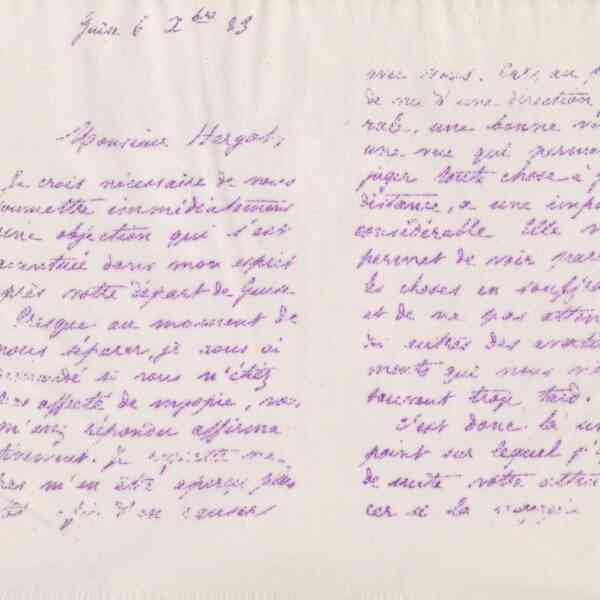 Guise 6 Xbre 83
Monsieur Hergot,
Je crois nécessaire de vous
soumettre immédiatement
une objection qui s'est
accentuée dans mon esprit
après votre départ de Guise
Presque au moment de
nous séparer, je vous ai
demandé si vous n'étiez
pas affecté de myopie, vous
m'avez répondu affirma
tivement. Je regrette ne
pas m'en être aperçu plus
tôt afin d'en causer
avec vous. Car, au p
de vue d'une direction
rale, une bonne v
une vue qui perme
juger toute chose à
distance, a une imp
considérable. Elle
permet de voir
les choses en
et de ne pas atten
des autres des averti
ments qui nous
souvent trop tard.
C'est donc là un
point sur lequel j'
de suite votre atten
car si la myopie